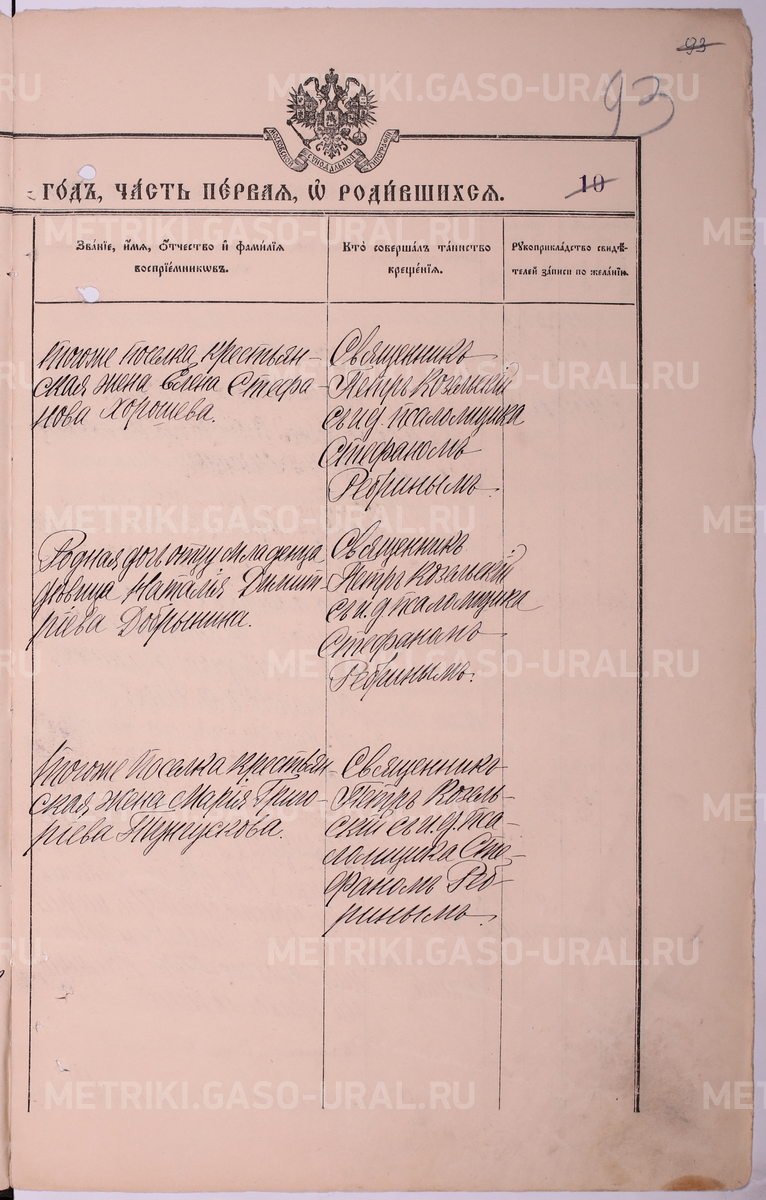 93
93
МОСКОВСКОЙ СѴНОДАЛЬНОЙ ТИПОГРАФІИ
го́дъ, ча́сть пе́рваѧ, ѡ҆ роди́вшихсѧ.
10
Зва́нїе, и҆́мѧ, ѻ҆́тчество и҆ фами́лїѧ
воспрїе́мникѡвъ.
Кто̀ соверша́лъ та́инство
креще́нїѧ.
Рꙋкоприкла́дство свидѣ́-
телей за́писи по жела́нїю.
Тогоже поселка крестьян-
ская жена Елена Стефа-
нова Хорошева.
Священникъ
Петръ Козельскій
съ и. д. псаломщика
Стефаномъ
Ребринымъ.
Родная дочь отцу младенца
дѣвица Наталія Димит-
ріева Добрынина.
Священникъ
Петръ Козельскій
съ и. д. псаломщика
Стефаномъ
Ребринымъ.
Тогоже поселка крестьян-
ская жена Марія Григо-
рьева
Священникъ
Петръ Козель-
скій съ и. д. пса-
ломщика Сте-
фаномъ Реб-
ринымъ.
METRIKI.GASO-URAL.RU